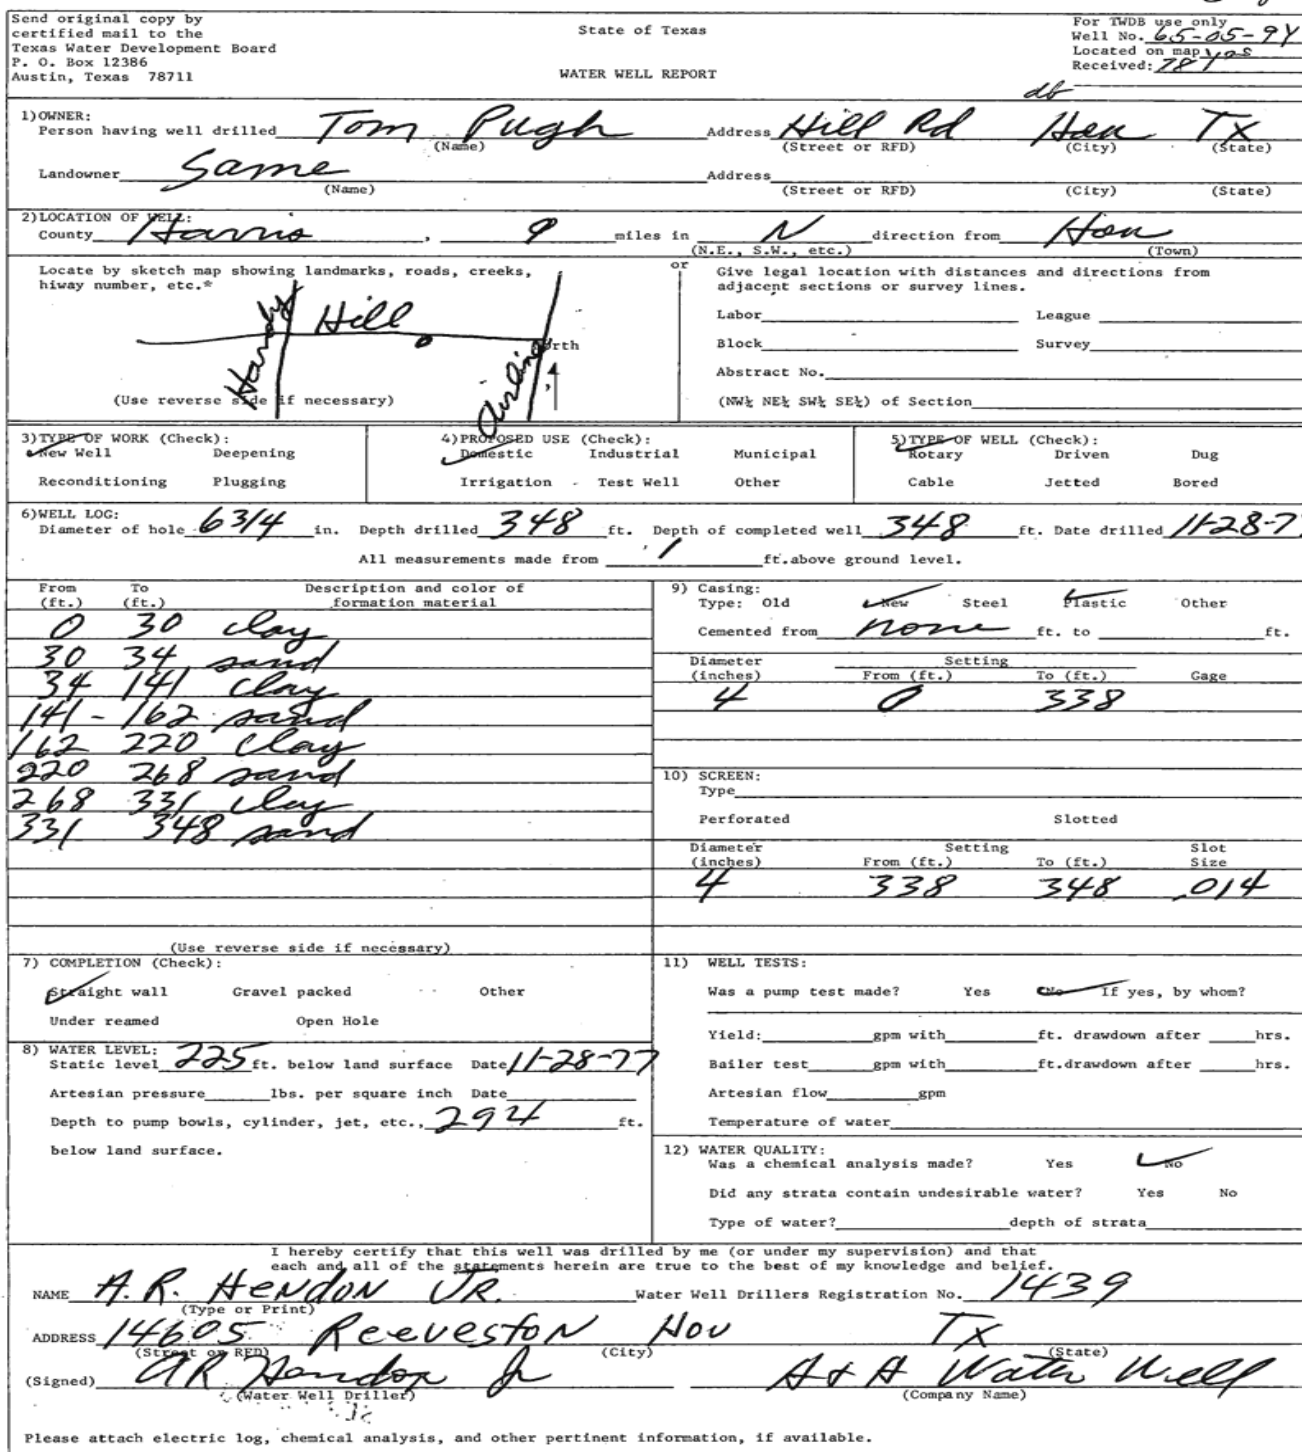 Send original copy by
certified mail to the
Texas Water Development Board
P. O. Box 12386
Austin, Texas 78711
State of Texas
WATER WELL REPORT
For TWDB use only
Well No. 65-05-9Y
Located on map yes
Received: 781
db
1)OWNER:
Person having well drilled Tom Pugh Address Hill Rd Hou TX
(Name) (Street or RFD) (City) (State)
Landowner Same Address
(Name) (Street or RFD) (City) (State)
2)LOCATION OF WELL:
County Harris , 9 miles in N direction from Hou
(N.E., S.W., etc.) (Town)
Locate by sketch map showing landmarks, roads, creeks,
hiway number, etc.*
Hardy Hill Airline
North
(Use reverse side if necessary)
or
Give legal location with distances and directions from
adjacent sections or survey lines.
Labor League
Block Survey
Abstract No.
(NW¼ NE¼ SW¼ SE¼) of Section
3)TYPE OF WORK (Check):
New Well Deepening
Reconditioning Plugging
4)PROPOSED USE (Check):
Domestic Industrial Municipal
Irrigation Test Well Other
5)TYPE OF WELL (Check):
Rotary Driven Dug
Cable Jetted Bored
6)WELL LOG:
Diameter of hole 6 3/4 in. Depth drilled 348 ft. Depth of completed well 348 ft. Date drilled 11-28-7
All measurements made from 1 ft.above ground level.
From To Description and color of
(ft.) (ft.) formation material
0 30 clay
30 34 sand
34 141 clay
141 - 162 sand
162 220 clay
220 268 sand
268 331 clay
331 348 sand
(Use reverse side if necessary)
9) Casing:
Type: Old New Steel Plastic Other
Cemented from none ft. to ft.
Diameter Setting
(inches) From (ft.) To (ft.) Gage
4 0 338
10) SCREEN:
Type
Perforated Slotted
Diameter Setting Slot
(inches) From (ft.) To (ft.) Size
4 338 348 .014
7) COMPLETION (Check):
Straight wall Gravel packed Other
Under reamed Open Hole
8) WATER LEVEL:
Static level 225 ft. below land surface Date 11-28-77
Artesian pressure lbs. per square inch Date
Depth to pump bowls, cylinder, jet, etc., 294 ft.
below land surface.
11) WELL TESTS:
Was a pump test made? Yes No If yes, by whom?
Yield: gpm with ft. drawdown after hrs.
Bailer test gpm with ft.drawdown after hrs.
Artesian flow gpm
Temperature of water
12) WATER QUALITY:
Was a chemical analysis made? Yes No
Did any strata contain undesirable water? Yes No
Type of water? depth of strata
I hereby certify that this well was drilled by me (or under my supervision) and that
each and all of the statements herein are true to the best of my knowledge and belief.
NAME A.R. Hendon JR. Water Well Drillers Registration No. 1439
(Type or Print)
ADDRESS 14605 Reeveston Hou Tx
(Street or RFD) (City) (State)
(Signed) AR Hendon Jr A & A Water Well
(Water Well Driller) (Company Name)
Please attach electric log, chemical analysis, and other pertinent information, if available.